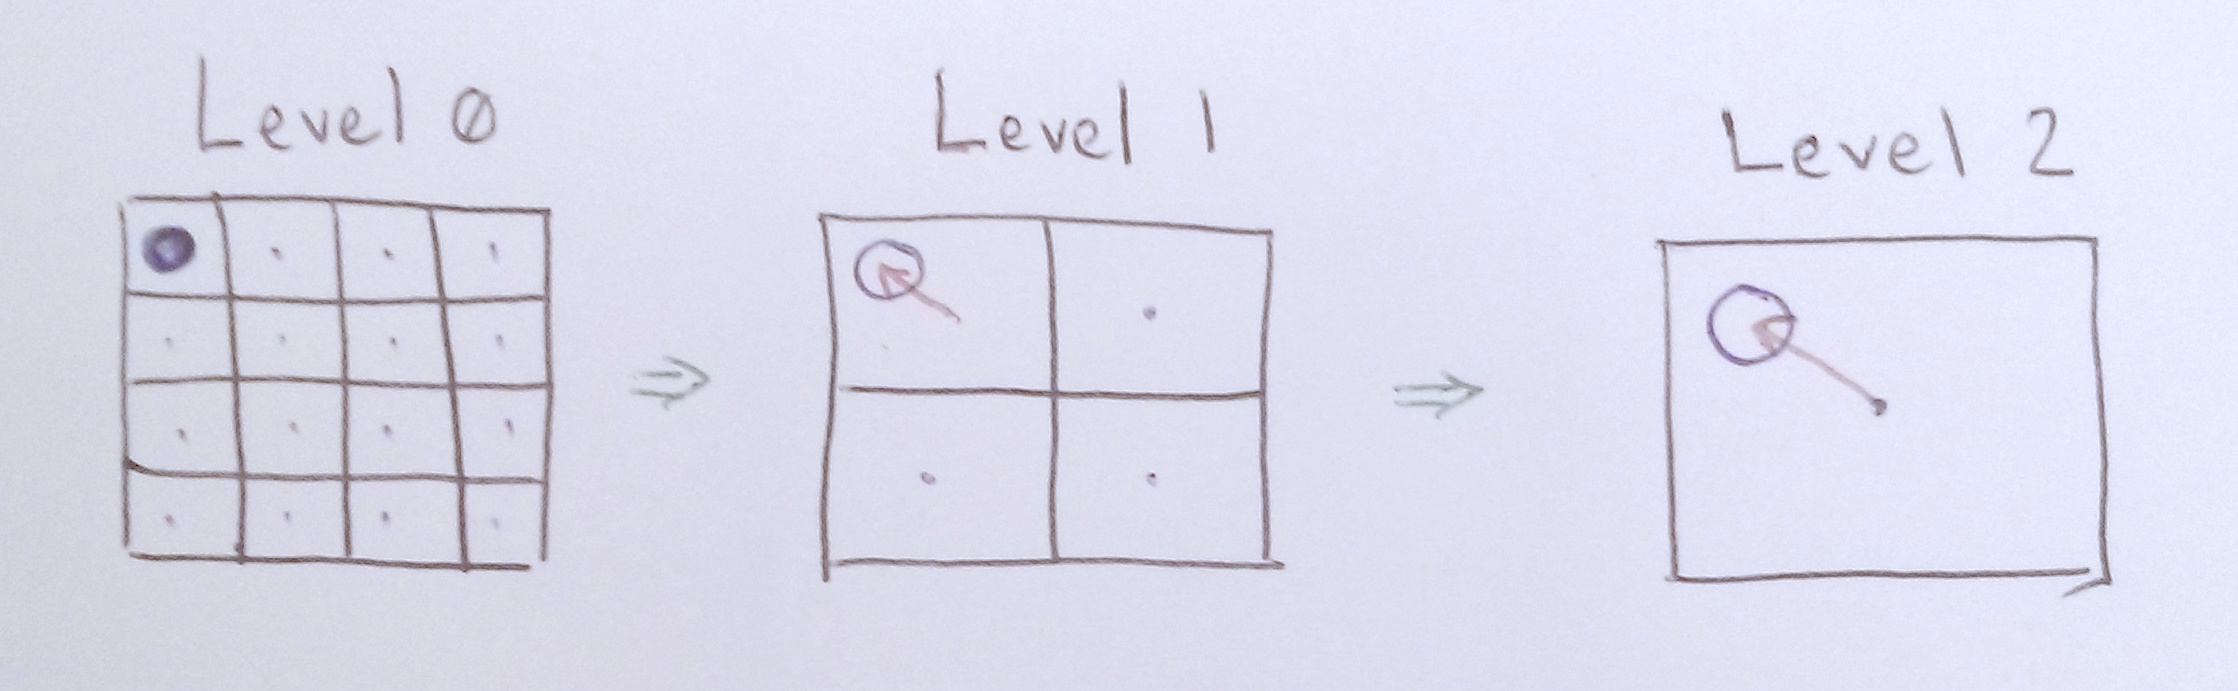 Level 0
Level 1
Level 2